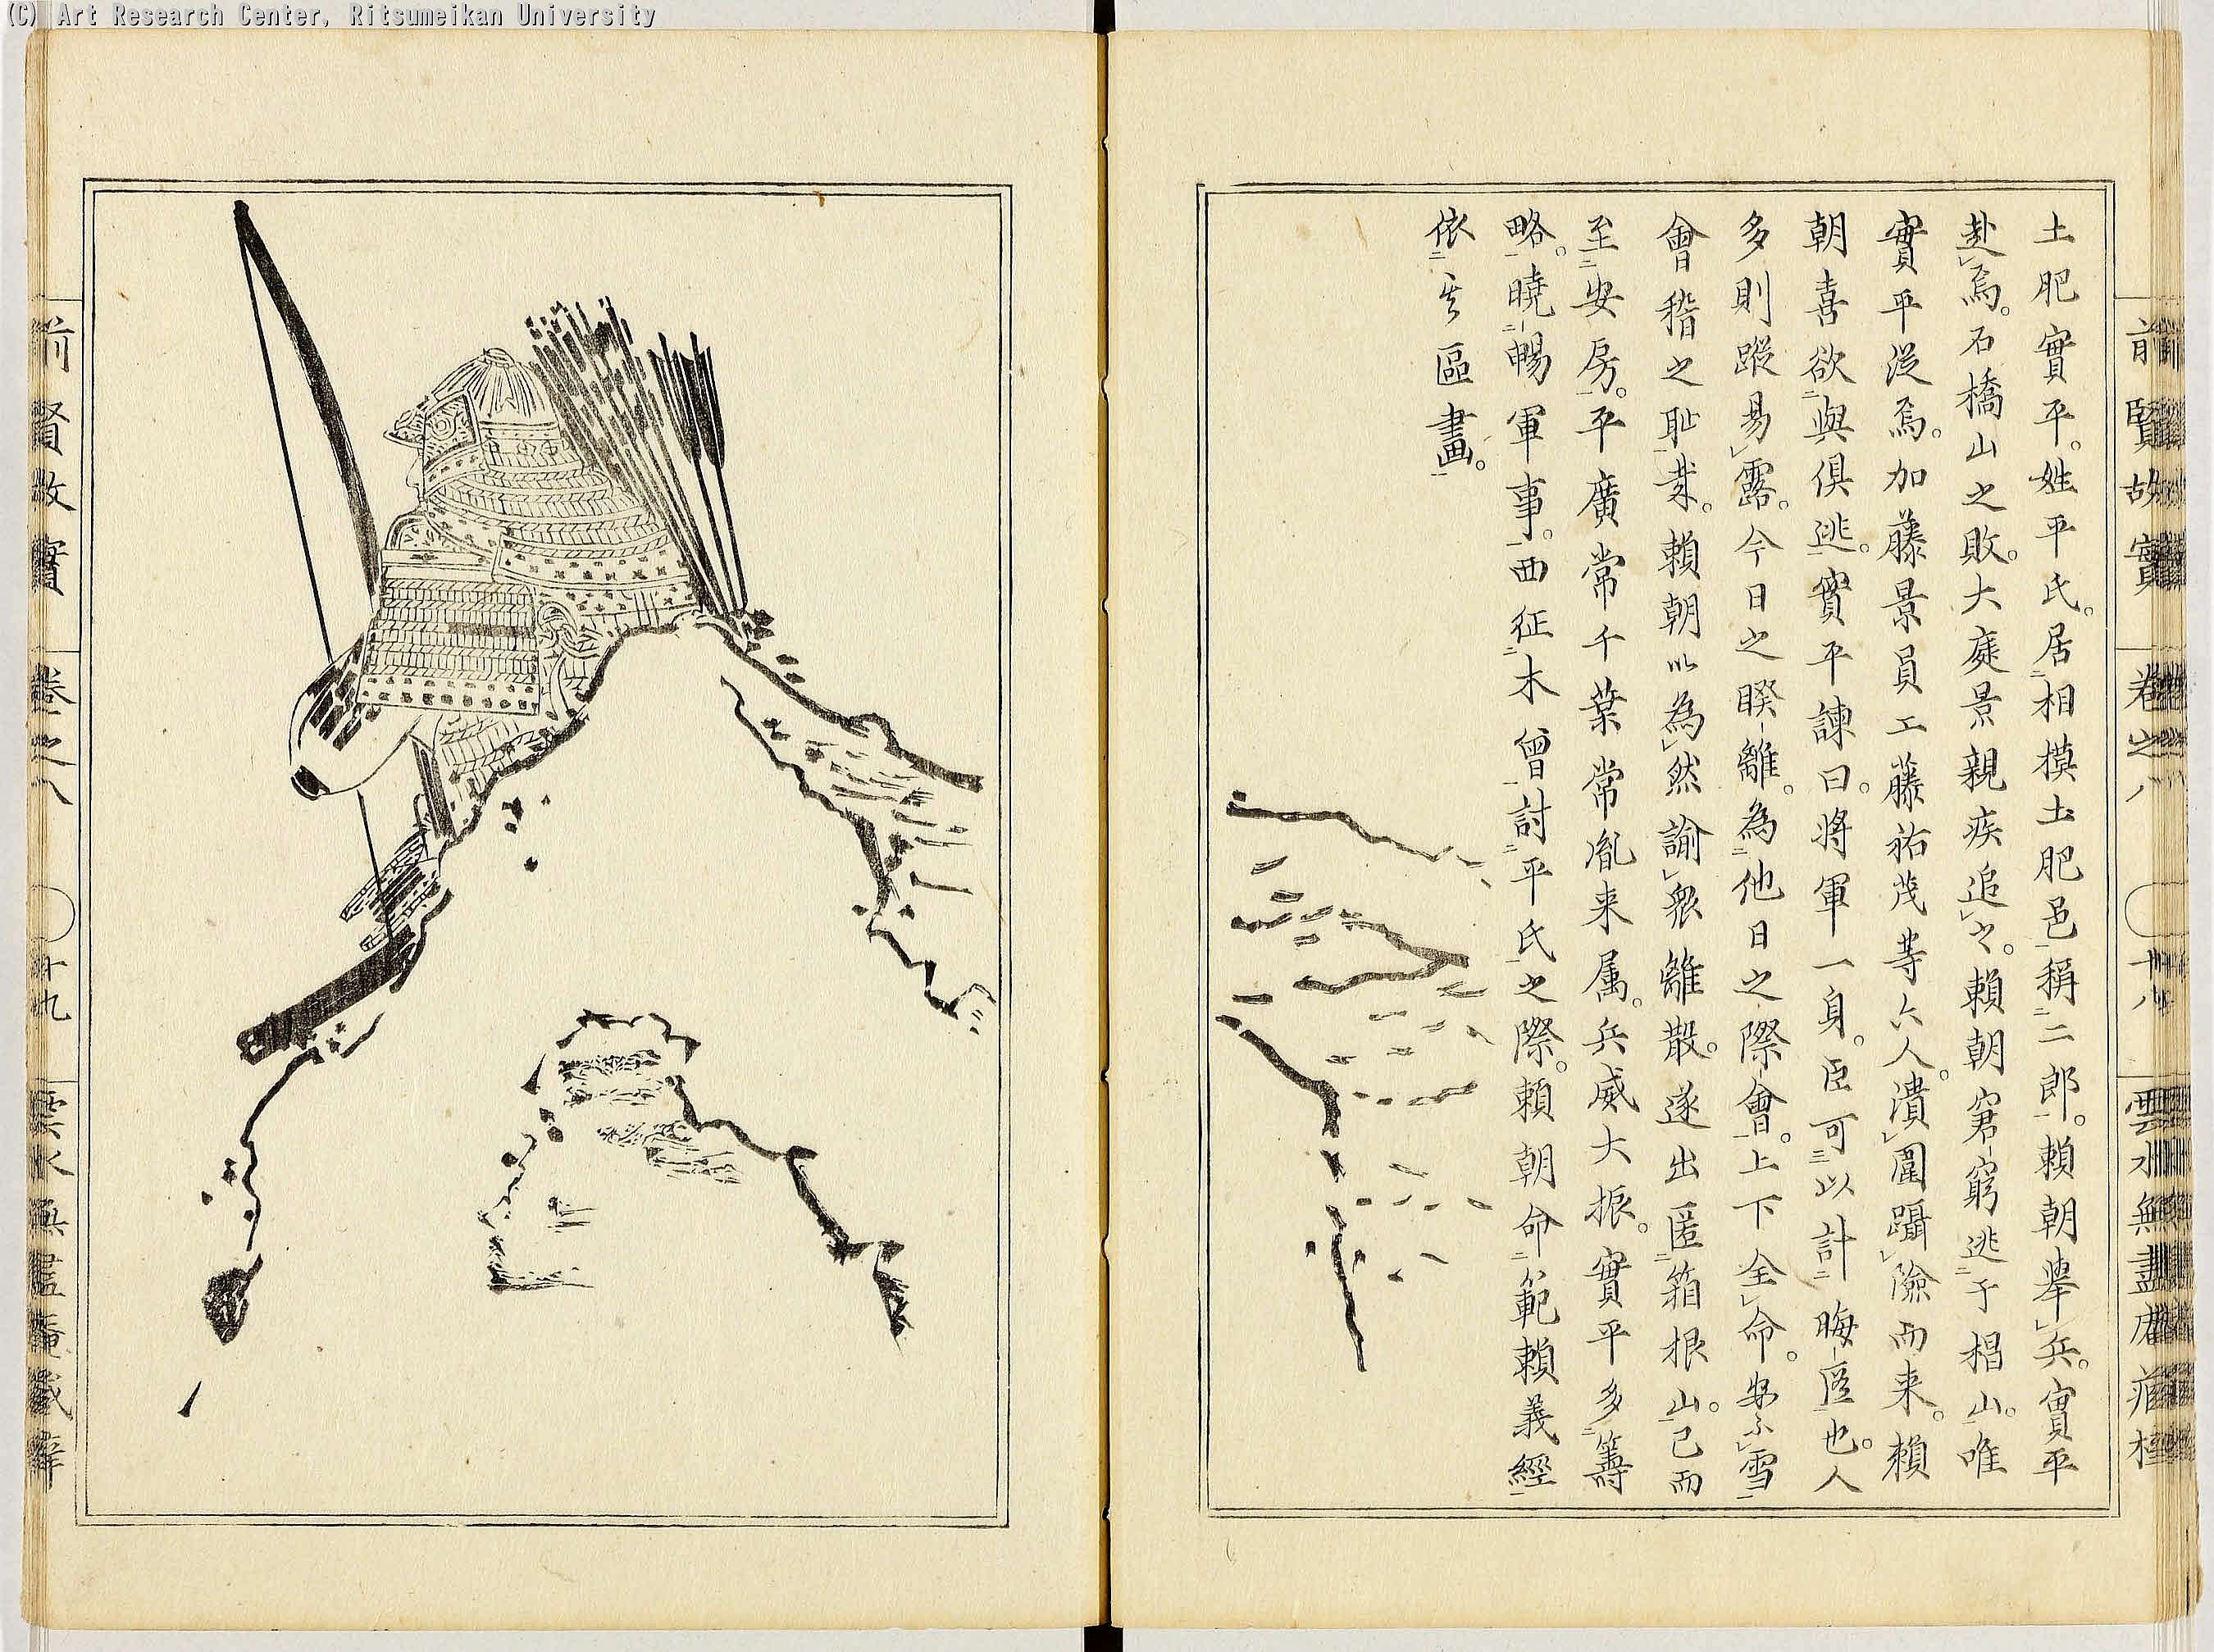 (C) Art Research Center, Ritsumeikan University
前賢故實 卷之八 〇十八 雲水無盡庵藏梓
土肥實平。姓平氏。居相模土肥邑稱二郎。賴朝舉兵。實平
赴焉。石橋山之敗。大庭景親疾追之。賴朝窘窮逃于椙山。唯
實平從焉。加藤景員工藤祐茂等六人。潰圍躡險而来。賴
朝喜欲與俱逃。實平諫曰。將軍一身。臣可以計晦匿也。人
多則蹤易露。今日之睽離。為他日之際會。上下全命。以雪
會稽之恥業。賴朝以為然諭衆離散。遂出匿箱根山。已而
至安房。平廣常千葉常胤来属。兵威大振。實平多籌
略。曉暢軍事。西征木曾討平氏之際。賴朝命範賴義經
依其區畫。
前賢故實 卷之八 〇十九 雲水無盡庵藏梓